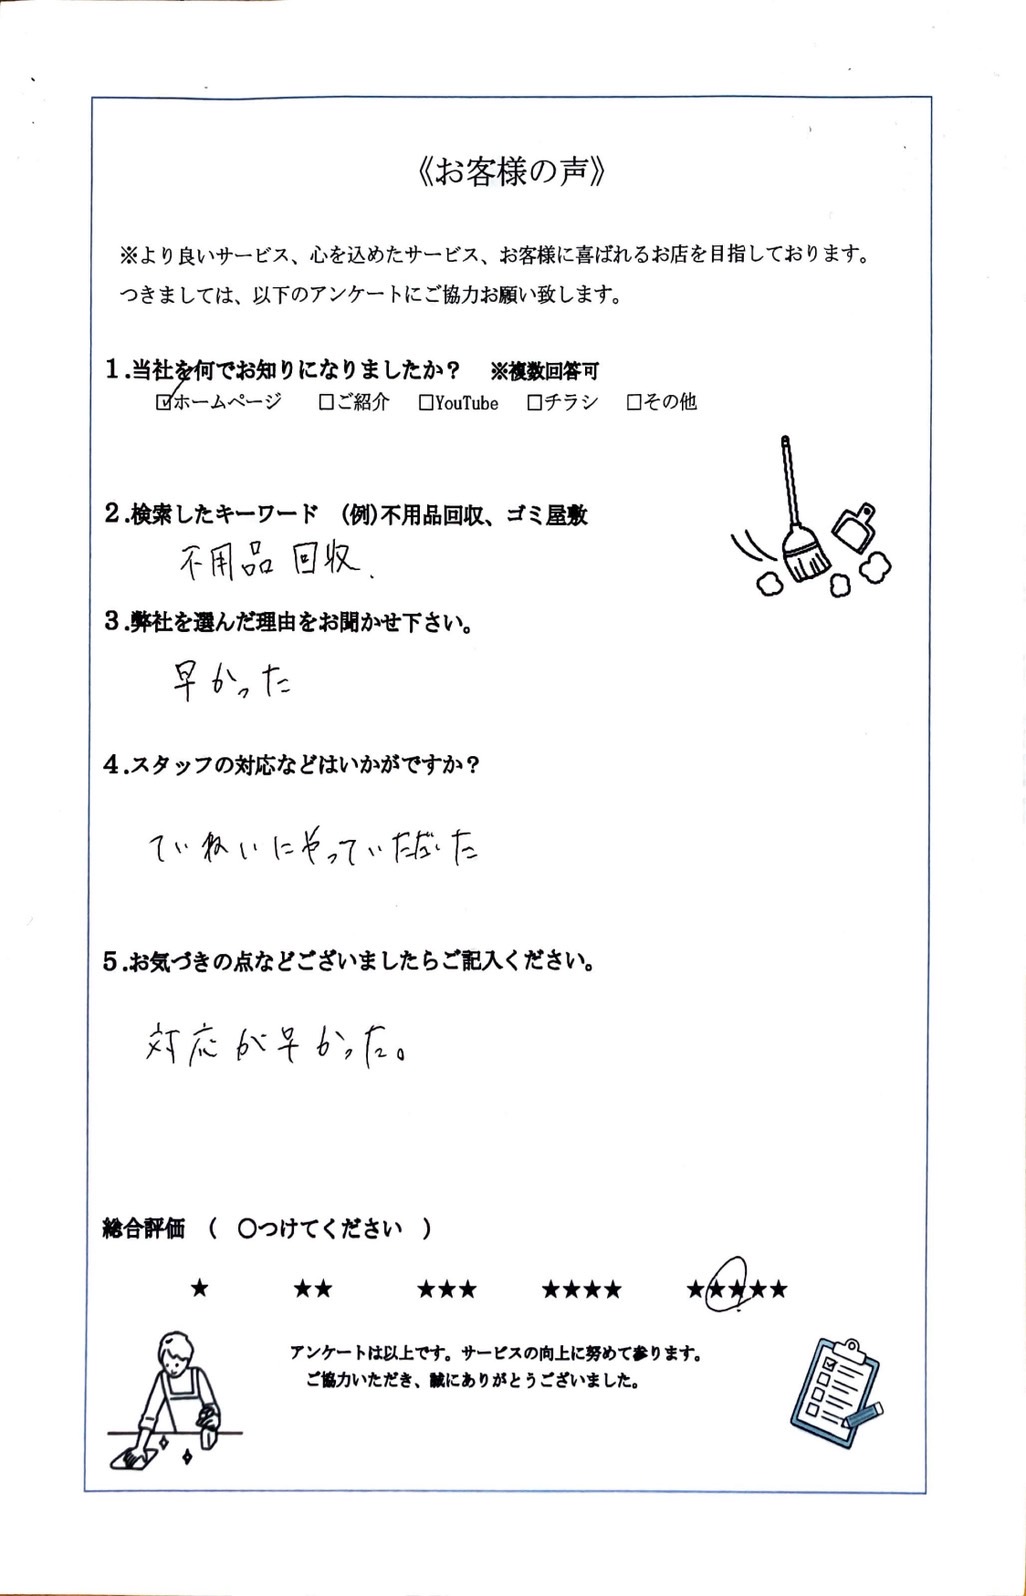 《お客様の声》
※より良いサービス、心を込めたサービス、お客様に喜ばれるお店を目指しております。
つきましては、以下のアンケートにご協力お願い致します。
1.当社を何でお知りになりましたか？ ※複数回答可
☑ホームページ □ご紹介 □YouTube □チラシ □その他
2.検索したキーワード (例)不用品回収、ゴミ屋敷
不用品回収.
3.弊社を選んだ理由をお聞かせ下さい。
早かった
4.スタッフの対応などはいかがですか？
ていねいにやっていただいた
5.お気づきの点などございましたらご記入ください。
対応が早かった。
総合評価 ( 〇つけてください )
★ ★★ ★★★ ★★★★ ★★★★★
アンケートは以上です。サービスの向上に努めて参ります。
ご協力いただき、誠にありがとうございました。